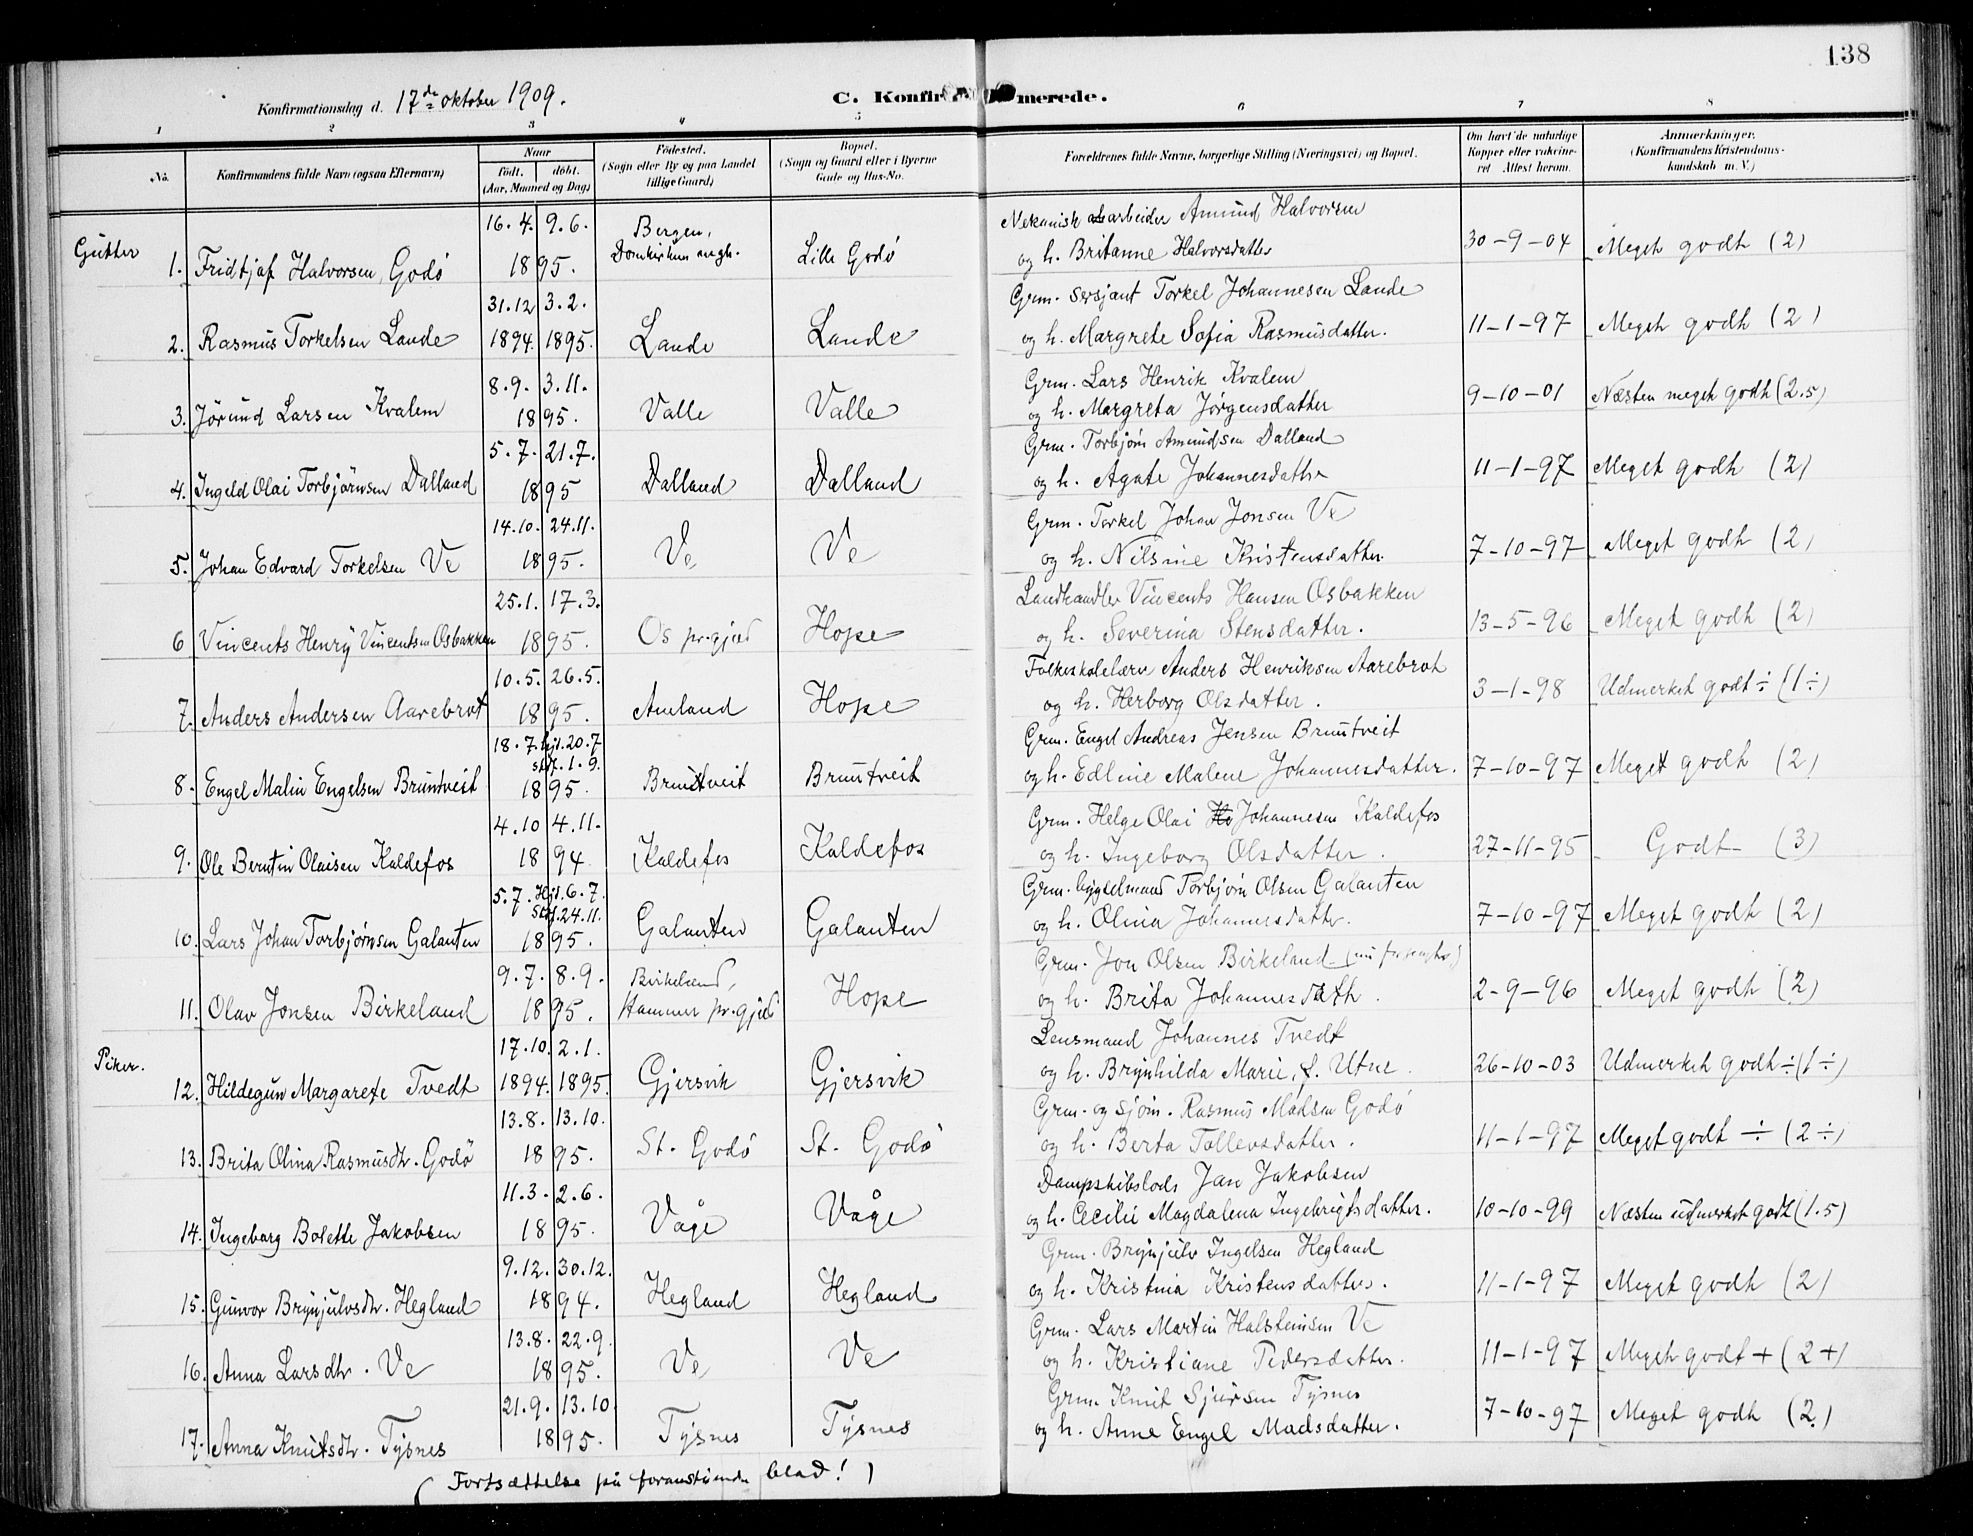 138
Konfirmationsdag d. 17de oktober 1909.
C. Konfirmerede.
1 2 3 4 5 6 7 8
No. Konfirmandens fulde Navn (ogsaa Efternavn) Naar født. døbt. (Aar, Maaned og Dag) Fødested. (Sogn eller By og paa Landet tillige Gaard) Bopæl. (Sogn og Gaard eller i Byerne Gade og Hus-No. Forældrenes fulde Navne, borgerlige Stilling (Næringsvei) og Bopæl. Om havt de naturlige Kopper eller vakcineret Attest herom. Anmærkninger. (Konfirmandens Kristendomskundskab m. V.)
Gutter
16.4. 9.6. Bergen, Mekanisk arbeider Amund Halvorsen
1. Fridtjof Halvorsen, Godø 1895. Domkirken Lille Godø og h. Britanne Halvorsdatter 30-9-04 Meget godt (2)
31.12 3.2. Grm. Sersjant Torkel Johannesen Lande
2. Rasmus Torkelsen Lande 1894. 1895. Lande Lande og h. Margrete Sofia Rasmusdatter. 11-1-97 Meget godt (2)
8.9. 3.11. Grm. Lars Henrik Kvalem
3. Jørund Larsen Kvalem 1895. Valle Valle og h. Margreta Jørgensdatter 9-10-01 Næsten meget godt (2.5)
5.7. 21.7. Grm. Torbjørn Amundsen Dalland
4. Ingeld Olai Torbjørnsen Dalland 1895 Dalland Dalland og h. Agate Johannesdatter 11-1-97 Meget godt (2)
14.10. 24.11. Grm. Torkel Johan Jonsen Ve
5. Johan Edvard Torkelsen Ve 1895. Ve Ve og h. Nilsine Kristensdatter 7-10-97 Meget godt (2)
25.1. 17.3. Landhandler Vincents Hansen Osbakken
6 Vincents Henry Vincentsen Osbakken 1895. Os pr.gjeld Hope og h. Severina Stensdatter. 13-5-96 Meget godt (2)
10.5. 26.5. Folkeskolelærer Anders Henriksen Aarebrot
7. Anders Andersen Aarebrot 1895. Hope og h. Herborg Olsdatter. 3-1-98 Udmerket godt ÷ (1÷)
18.7. hjd. 20.7 stf. 1.9. Grm. Engel Andreas Jensen Bruntveit
8. Engel Malin Engelsen Bruntveit 1895. Bruntveit Bruntveit og h. Edline Malene Johannesdatter. 7-10-97 Meget godt (2)
4.10 4.11. Grm. Helge Olai Johannesen Kaldefos
9. Ole Berntin Olaisen Kaldefos 1894 Kaldefos Kaldefos og h. Ingeborg Olsdatter. 27-11-95 Godt (3)
5.7. Hjd. 6.7. Stf. 24.11. Grm. bygselmand Torbjørn Olsen Galanten
10. Lars Johan Torbjørnsen Galanten 1895. Galanten Galanten og h. Olina Johannesdatter. 7-10-97 Meget godt (2)
9.7. 8.9. Birkeland, Grm. Jon Olsen Birkeland
11. Olav Jonsen Birkeland 1895. Hammer pr.gjeld Hope og h. Brita Johannesdatter. 2-9-96 Meget godt (2)
Piker.
17.10. 2.1. Lensmand Johannes Tvedt
12. Hildegun Margarete Tvedt 1894. 1895. Gjersvik Gjersvik og h. Brynhilda Marie, f. Utne. 26-10-03 Udmerket godt ÷ (1÷)
13.8. 13.10. Grm. og sjøm. Rasmus Madsen Godø
13. Brita Olina Rasmusdtr. Godø 1895. St. Godø St. Godø og h. Berta Tollevsdatter. 11-1-97 Meget godt ÷ (2÷)
11.3. 2.6. Dampskibslods Jan Jakobsen
14. Ingeborg Bolette Jakobsen 1895. Våge Våge og h. Cecilie Magdalena Ingebrigtsdatter. 10-10-99 Næsten udmerket godt (1.5)
9.12. 30.12. Grm. Brynjulv Ingelsen Hegland
15. Gunvor Brynjulvsdtr. Hegland 1894. Hegland Hegland og h. Kristina Kristensdatter. 11-1-97 Meget godt (2)
13.8. 22.9. Grm. Lars Martin Halsteinsen Ve
16. Anna Larsdtr. Ve 1895. Ve Ve og h. Kristiane Pedersdatter. 11-1-97 Meget godt + (2+)
21.9. 13.10. Grm. Knut Sjursen Tysnes
17. Anna Knutsdtr. Tysnes 1895. Tysnes Tysnes og h. Anne Engel Madsdatter. 7-10-97 Meget godt (2)
(Fortsættelse på foranstående blad!)